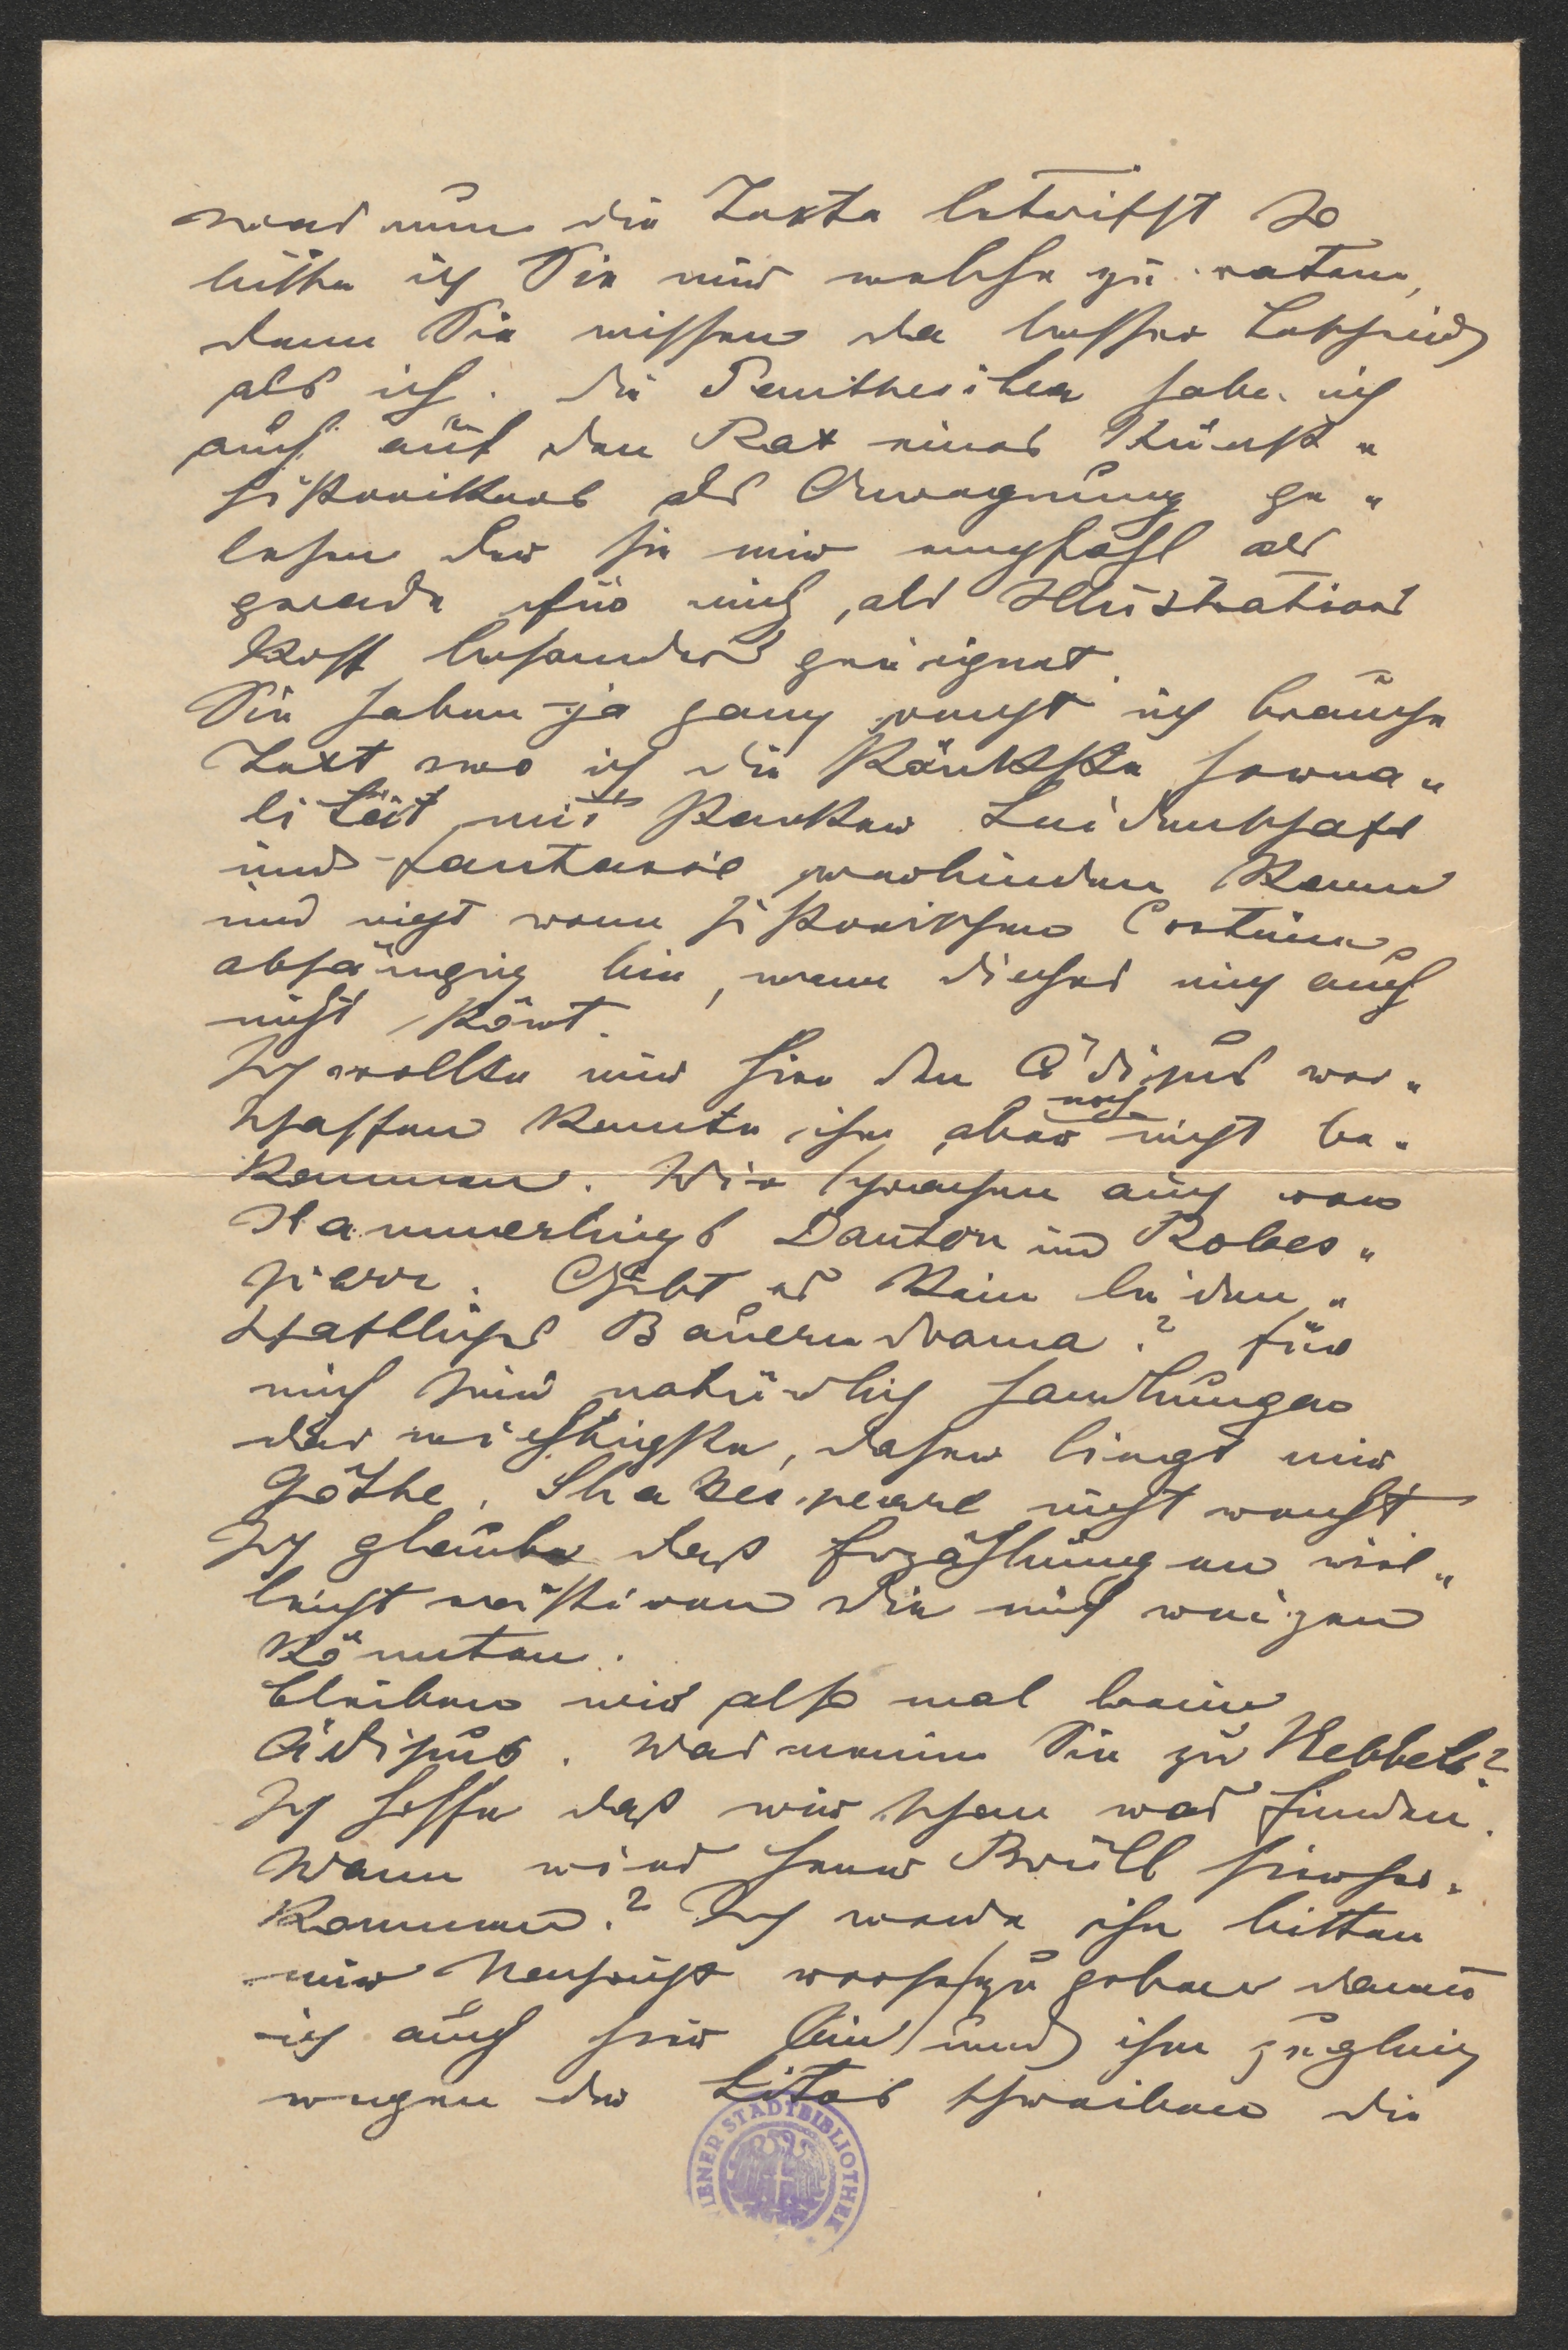 was nun die Texte betrifft so
bitte ich Sie mir welche zu raten,
denn Sie wissen da besser Bescheid
als ich. Die Penthesilea habe ich
auch auf den Rat eines Kunst„
historikers als Anregung ge„
lesen der sie mir empfahl als
gerade für mich, als Illustrations
stoff besonders geeignet.
Sie haben ja ganz recht ich brauche
Text wo ich die stärkste Forma„
lität mit starker Leidenschaft
und Fantasie verbinden kann
und nicht vom historischen Costüm
abhängig bin, wenn dieses mich auch
nicht stört.
Ich wollte mir hier den Ödipus ver„
schaffen konnte ihn aber noch nicht be„
kommen. Wir sprachen auch von
Hammerlings Danton und Robes„
pierr. Gibt es kein leiden„
schaftliches Bauerndrama? für
mich sind natürlich Handlungen
das wichtigste, daher liegt mir
Göthe, Shakespeare nicht recht
Ich glaube daß Erzählungen viel„
leicht existieren die mich reizen
könnten.
Bleiben wir also mal beim
Ödipus. Was meinen Sie zu Hebbels?
Ich hoffe daß wir schon was finden.
Wann wird Herr Brüll hierher„
kommen? Ich werde ihn bitten
mir Nachricht vorher zu geben damit
ich auch hier bin und ihm zugleich
wegen der Litos schreiben die
WIENER STADTBIBLIOTHEK